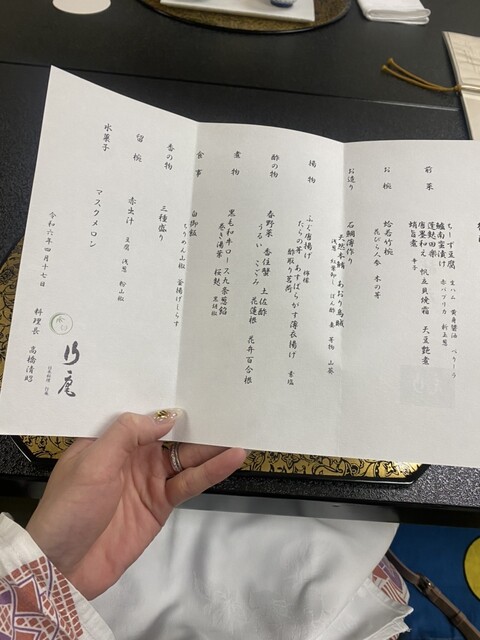 前菜
ちーず豆腐 生ハム 黄身醤油 べりーら
鱸南蛮漬け 赤パプリカ 新玉葱
蓬麩田楽
唐墨和え 帆立貝焼霜 天豆艶煮
蛸旨煮 辛子
お椀
蛤若竹椀
花びら人参 木の芽
お造り
石鯛薄作り
天然本鮪 あおり烏賊
浅葱 紅葉卸し ぽん酢 妻 芽物 山葵
揚物
ふぐ唐揚げ 檸檬
たらの芽 あすぱらがす薄衣揚げ 素塩
酢取り茗荷
酢の物
春野菜 香住蟹 土佐酢
うるい こごみ 花蓮根 花弁百合根
煮物
黒毛和牛ロース九条葱餡
巻き湯葉 桜麩 黒胡椒
食事
白御飯
ちりめん山椒 釜揚げしらす
香の物
三種盛り
留椀
赤出汁 豆腐 浅葱 粉山椒
水菓子
マスクメロン
令和六年四月十七日
料理長 高橋清昭
日本料理 行庵